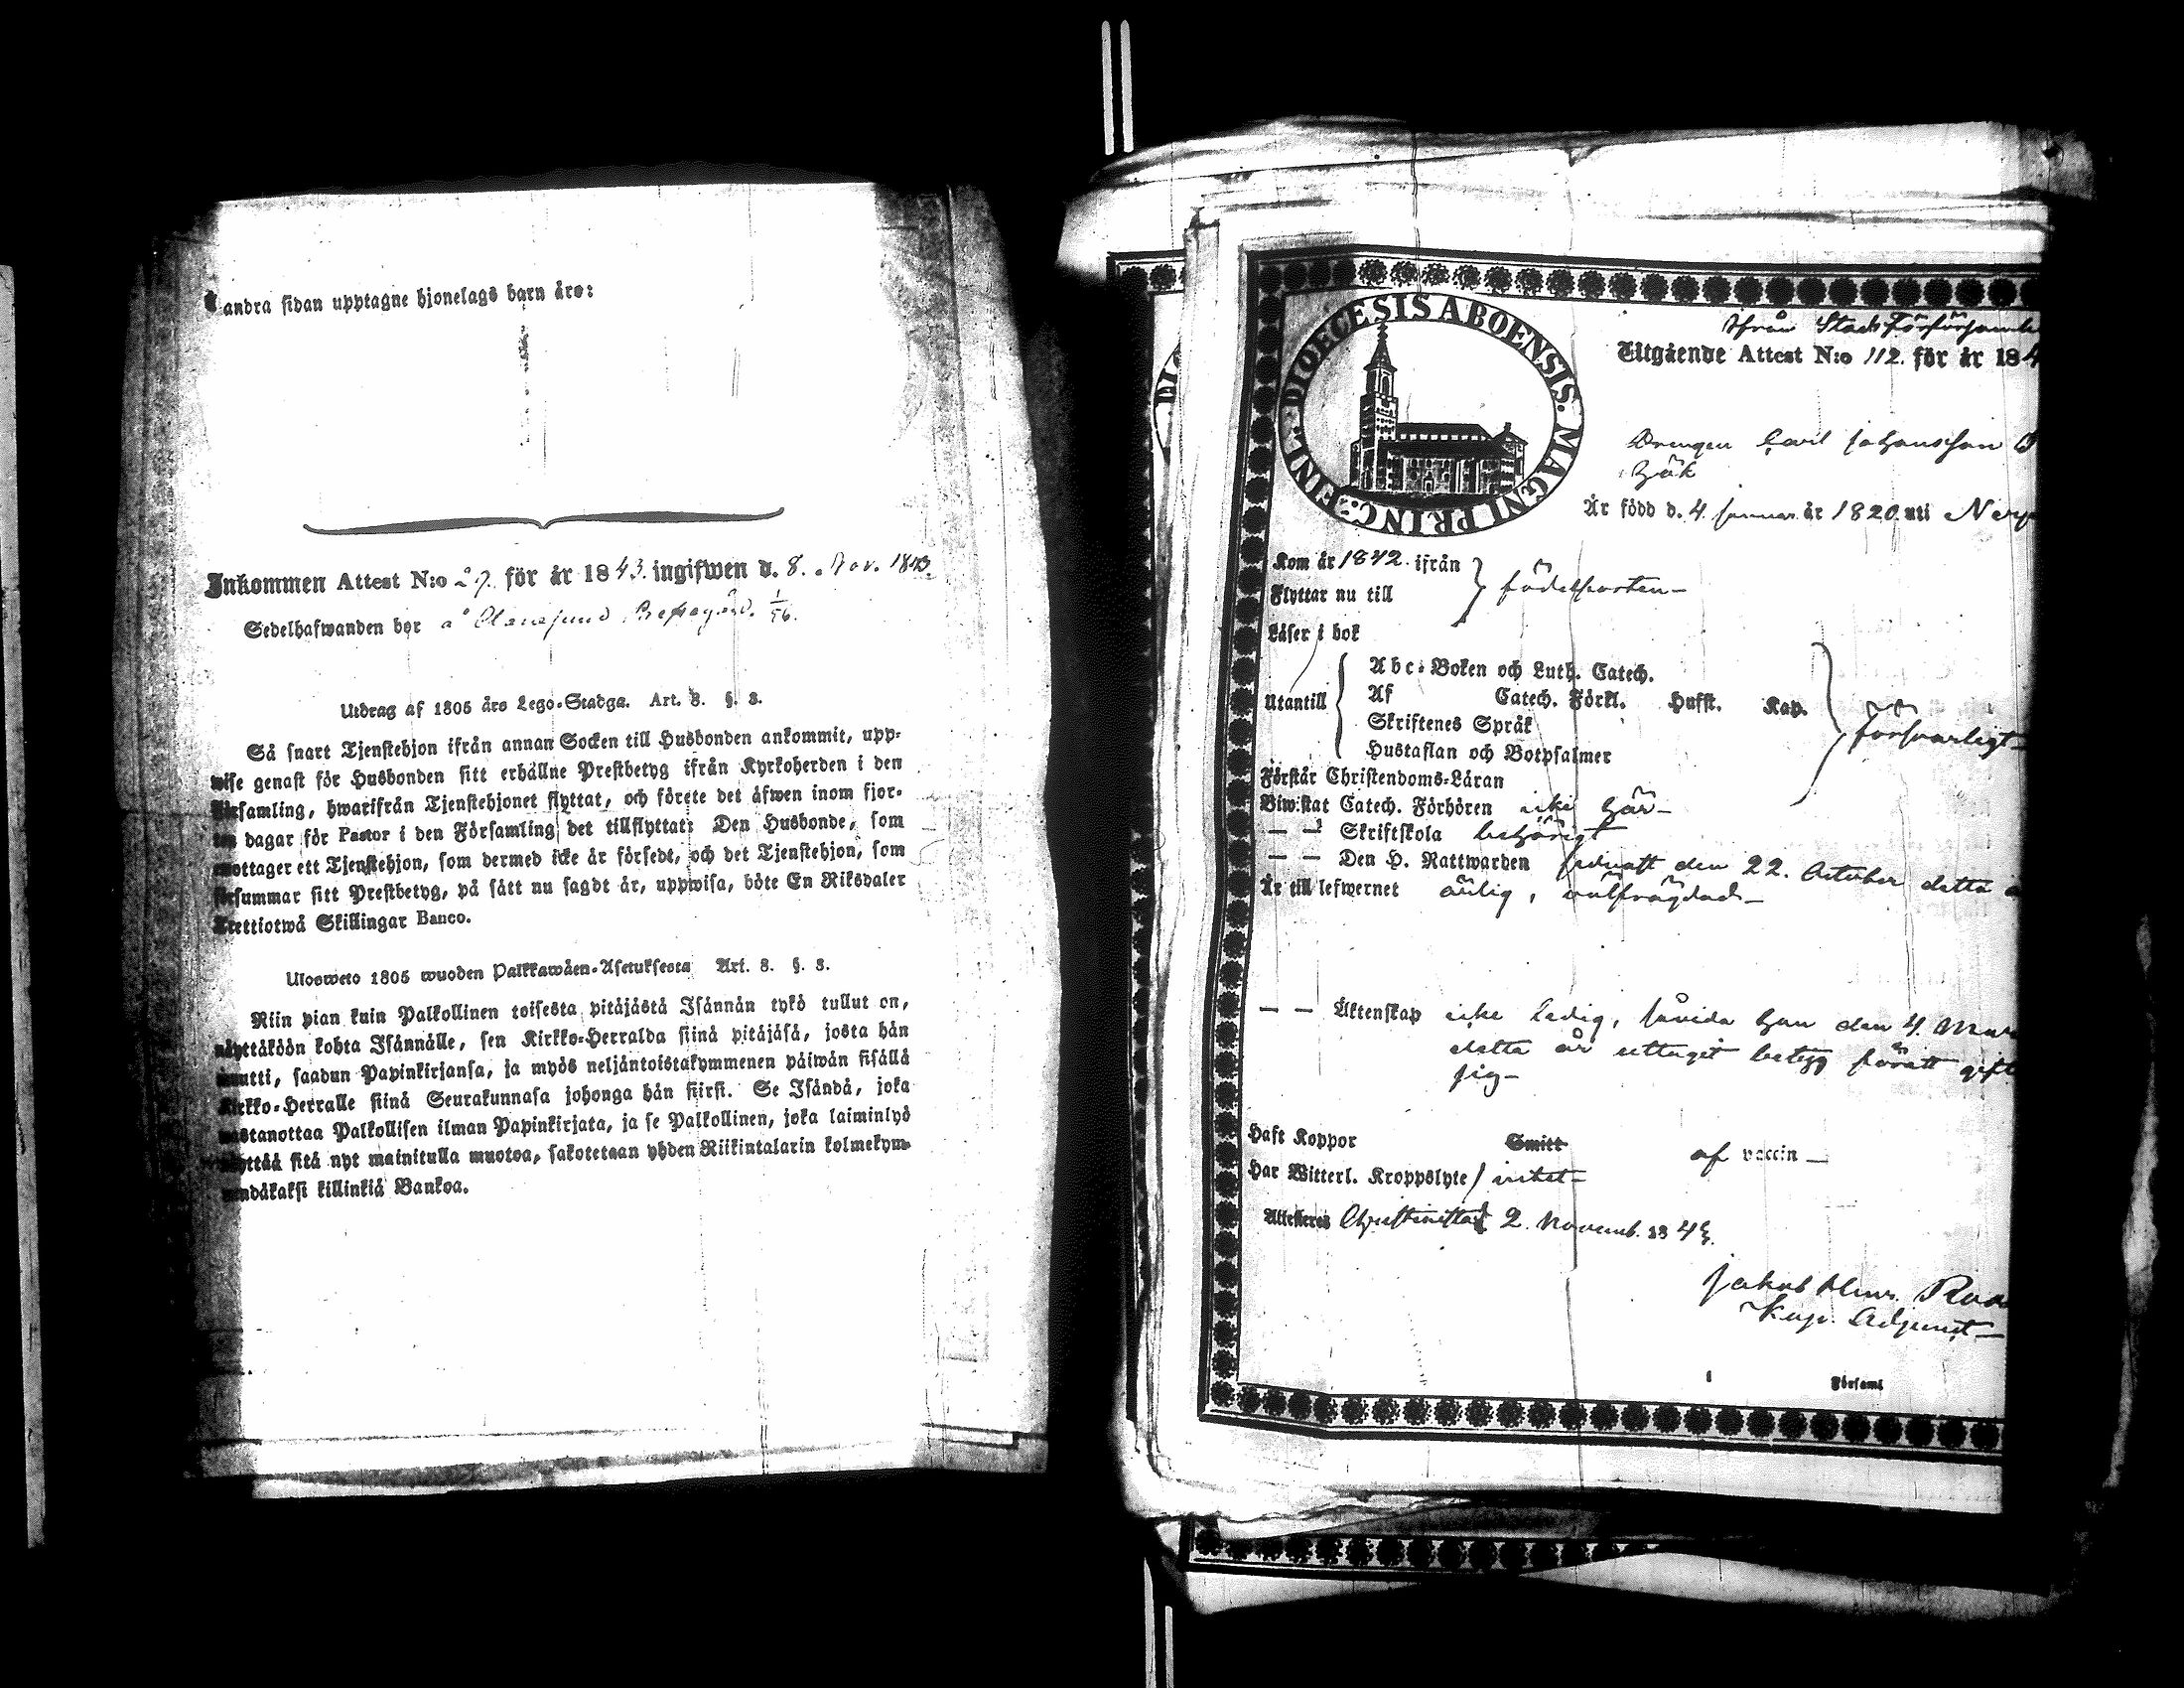 andra sidan upptagne hjonelags barn äro:
Inkommen Attest N:o 27. för år 1843. ingifwen d. 8. Nov. 1843.
Sedelhafwanden bor å
Utdrag af 1805 års Lego-Stadga. Art. 8. §. 3.
Så snart Tjenstehjon ifrån annan Socken till Husbonden ankommit, upp-
wise genast för Husbonden sitt erhållne Prestbetyg ifrån Kyrkoherden i den
Församling, hwarifrån Tjenstehjonet flyttat, och förete det äfwen inom fjor-
ton dagar för Pastor i den Församling det tillflyttat: Den Husbonde, som
emottager ett Tjenstehjon, som dermed icke är försedt, och det Tjenstehjon, som
försummar sitt Prestbetyg, på sätt nu sagdt är, uppwisa, böte En Riksdaler
Trettiotwå Skillingar Banco.
Ulosweto 1805 wuoden Palkkawäen-Asetuksesta Art. 8. §. 3.
Niin pian kuin Palkollinen toisesta pitäjästä Isännän tykö tullut on,
näyttäköön kohta Isännälle, sen Kirkko-Herralda siinä pitäjäsä, josta hän
muutti, saadun Papinkirjansa, ja myös neljäntoistakymmenen päiwän sisällä
Kirkko-Herralle siinä Seurakunnasa johonga hän siirsi. Se Isändä, joka
wastanottaa Palkollisen ilman Papinkirjata, ja se Palkollinen, joka laiminlyö
näyttää sitä nyt mainitulla muotoa, sakotetaan yhden Riikintalarin kolmekym-
mendäkaksi killinkiä Bankoa.
DIOECESIS ABOENSIS. MAGNI PRINC: FINL.
Ifrån Stads
Utgående Attest N:o 112. för år 184
Drengen Carl Johansson
bäk
Är född d. 4 Januar. år 1820. uti
Kom år 1842. ifrån
Flyttar nu till
födelseorten
Läser i bok
Abc-Boken och Luth. Catech.
Utantill Af Catech. Förkl. Husst. Kap.
Skriftenes Språk
Hustaflan och Botpsalmer
försvarligt
Förstår Christendoms-Läran
Biwistat Catech. Förhören icke här
— — Skriftskola behörigt
— — Den H. Nattwarden sednast den 22. October detta
Är till lefwernet ärlig, välfrägdad
— — Äktenskap icke ledig, såvida han den 4. Mars
detta år uttagit betyg föratt gifta
sig
Haft Koppor Smitt af vaccin
Har Witterl. Kroppslyte intet
Attesteres Christinestad 2. Novemb. 1843.
Jakob
Kap. Adjunct
i Församl